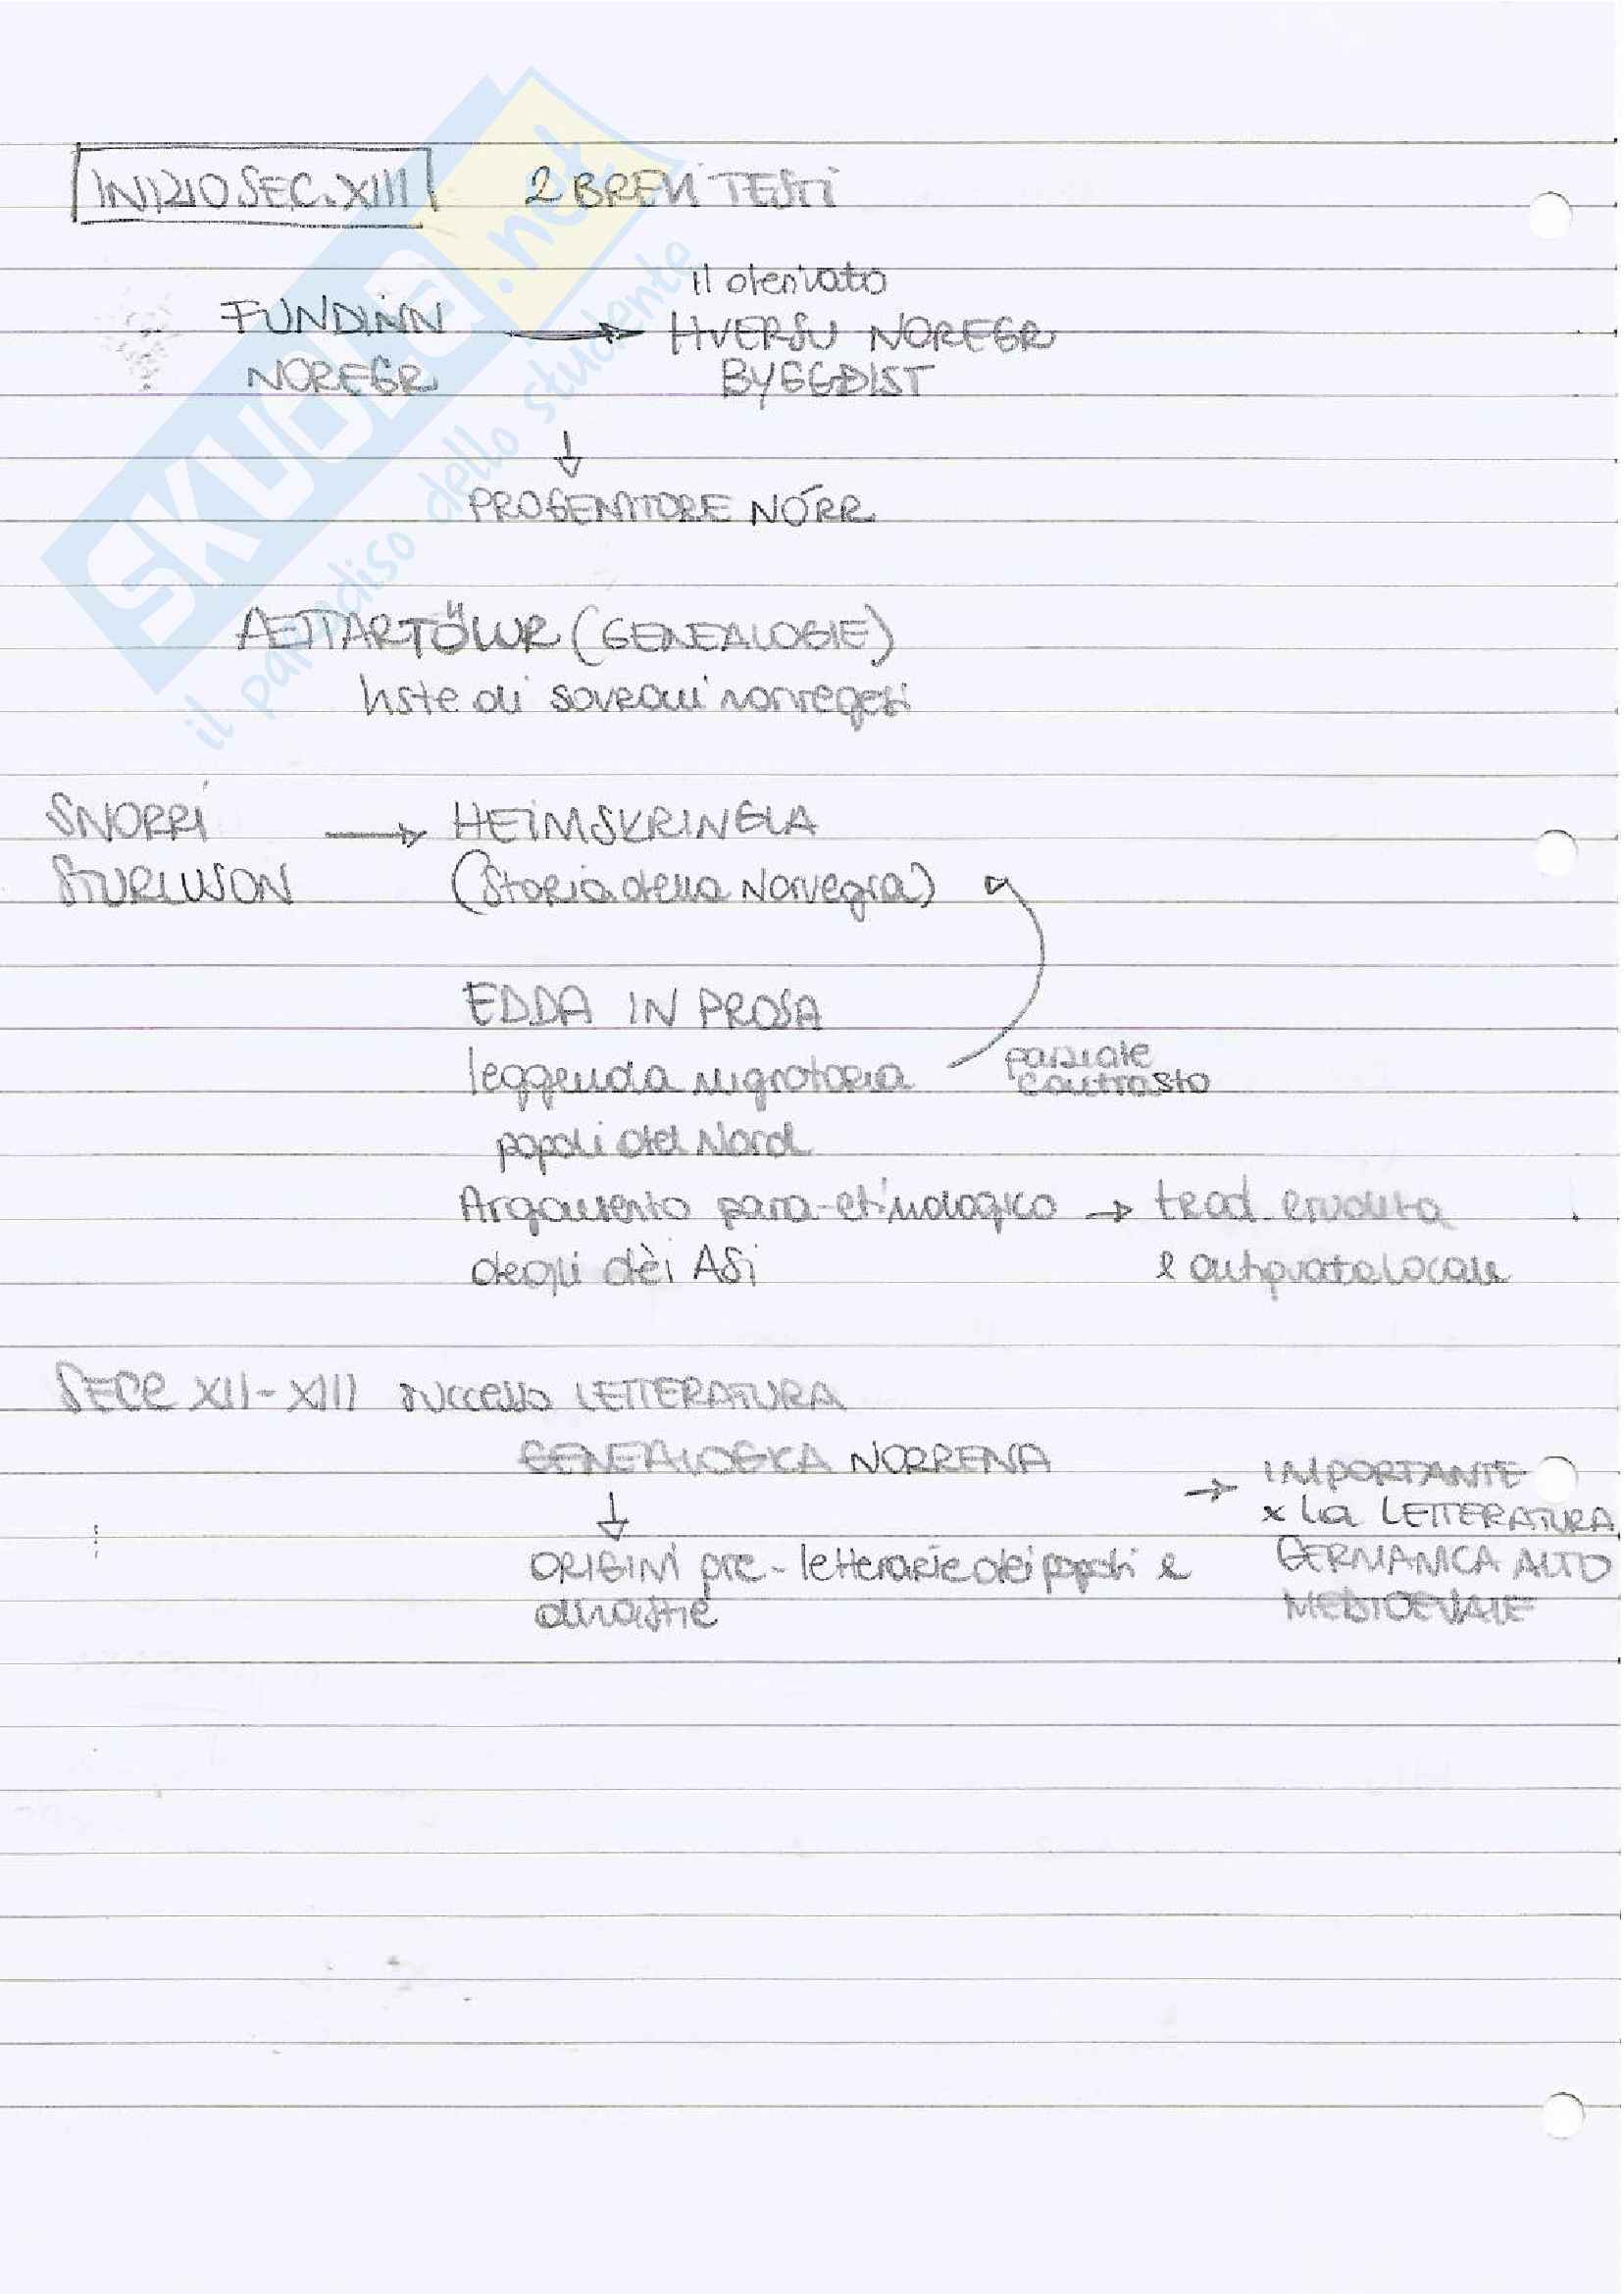 INIZIO SEC. XIII 2 BREVI TESTI
il derivato
FUNDINN → HVERSU NOREGR
NOREGR BYGGDIST
↓
PROGENITORE NÓRR
AETTARTÖLUR (GENEALOGIE)
liste di sovrani norvegesi
SNORRI → HEIMSKRINGLA
STURLUSON (Storia della Norvegia)
EDDA IN PROSA
leggenda migratoria parziale
contrasto
popoli del Nord
Argomento para-etimologico → trad. erudita
degli dèi Asi e antiquata locale
SECC XII-XIII successo LETTERATURA
GENEALOGICA NORRENA
→ IMPORTANTE
↓ x la LETTERATURA
ORIGINI pre-letterarie dei popoli e GERMANICA ALTO
dinastie MEDIOEVALE
SKUOLA.net
il paradiso dello studente